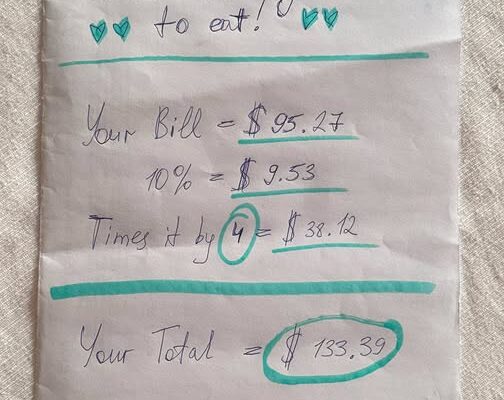 to eat!
Your Bill = $ 95.27
10% = $ 9.53
Times it by 4 = $ 38.12
Your Total = $ 133.39